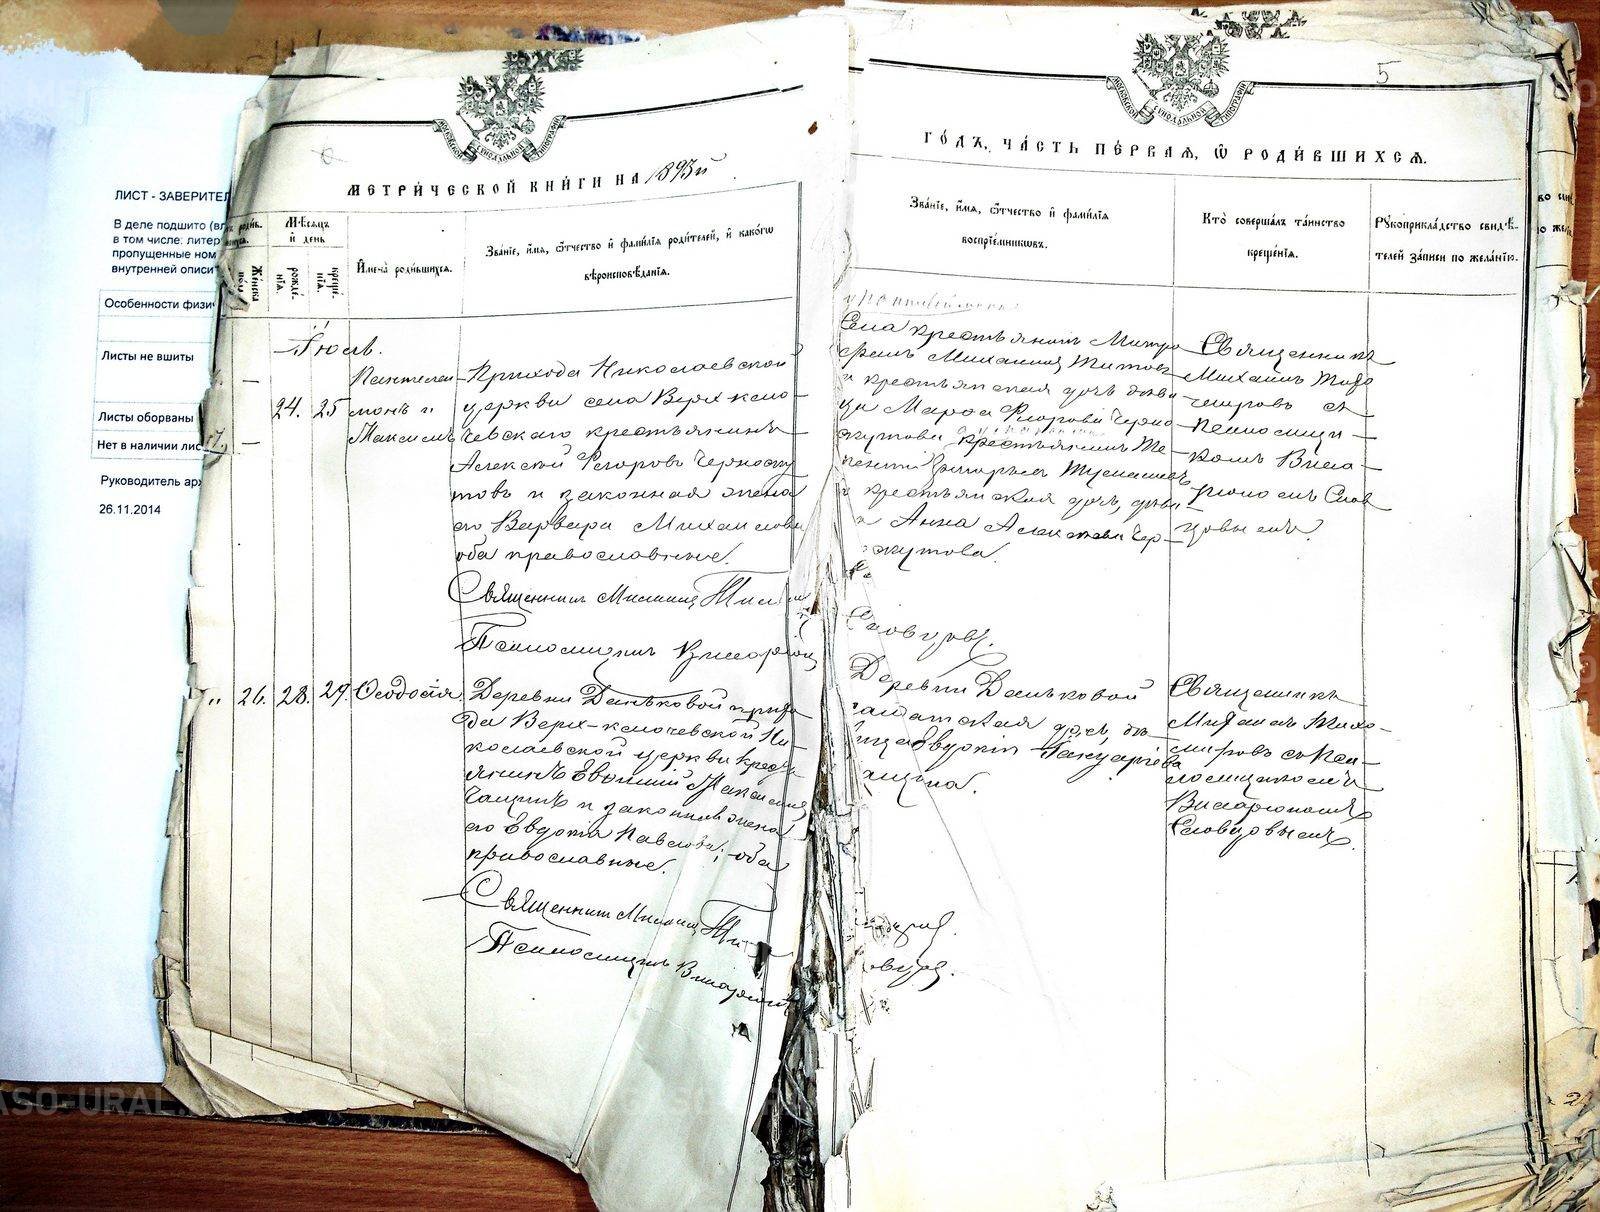 ЛИСТ - ЗАВЕРИТЕЛ
В деле подшито (вл
в том числе: литер
пропущенные ном
внутренней описи
Особенности физи
Листы не вшиты
Листы оборваны
Нет в наличии лис
Руководитель ар
26.11.2014
МОСКОВСКОЙ СѴНОДАЛЬНОЙ ТИПОГРАФІИ
МЕТРИ́ЧЕСКОЙ КНИ́ГИ НА 1893й
Мѣсяцъ и день
Женска пола.
рожде́нїѧ.
креще́нїѧ.
И҆мена̀ роди́вшихсѧ.
Зва́нїе, и҆́мѧ, ѻ҆́тчество и҆ фами́лїѧ роди́телей, и҆ како́гѡ
вѣроисповѣ́данїѧ.
Іюль.
24. 25
Пантелеи-
монъ и
Максимъ
Прихода Николаевской
церкви села Верхклю-
чевскаго крестьянинъ
Алексѣй Флоровъ Черноску
товъ и законная жена
его Варвара Михаилова
оба православные.
Священникъ Михаилъ Тихо
Псаломщикъ Виссаріон
" 26. 28. 29. Ѳеодосія
Деревни Даньковой прихо
да Верх-ключевской Ни-
колаевской церкви кресть
янинъ Евѳимій Максимов
и законная жена
его Евдокія Павлова; оба
православные.
Священникъ Михаилъ Ти
Псаломщикъ Виссаріонъ
5
МОСКОВСКОЙ СѴНОДАЛЬНОЙ ТИПОГРАФІИ
ГО́ДЪ, ЧА́СТЬ ПЕ́РВАЯ, Ѡ҆ РОДИ́ВШИХСѦ.
Зва́нїе, и҆́мѧ, ѻ҆́тчество и҆ фами́лїѧ
воспрїе́мникѡвъ.
Кто̀ соверша́лъ та́инство
креще́нїѧ.
Рꙋкоприкла́дство свидѣ́-
телей за́писи по жела́нїю.
Села крестьянинъ Митро
фанъ Михаиловъ Титовъ
и крестьянская дочь дѣви
ца Марѳа Флорова Черно
скутова крестьянинъ Те-
рентій
и крестьянская дочь, дѣви
ца Анна Алексѣева Чер-
скутова.
Священникъ
Михаилъ Тихо
мировъ съ
псаломщи-
комъ Висса-
ріономъ Слов
цовымъ.
Словцовъ.
Деревни Даньковой
солдатская дочь, дѣ-
вица Евдокія Іануаріева
Священникъ
Михаилъ Тихо-
мировъ съ пса-
ломщикомъ
Виссаріономъ
Словцовымъ.
овцовъ.